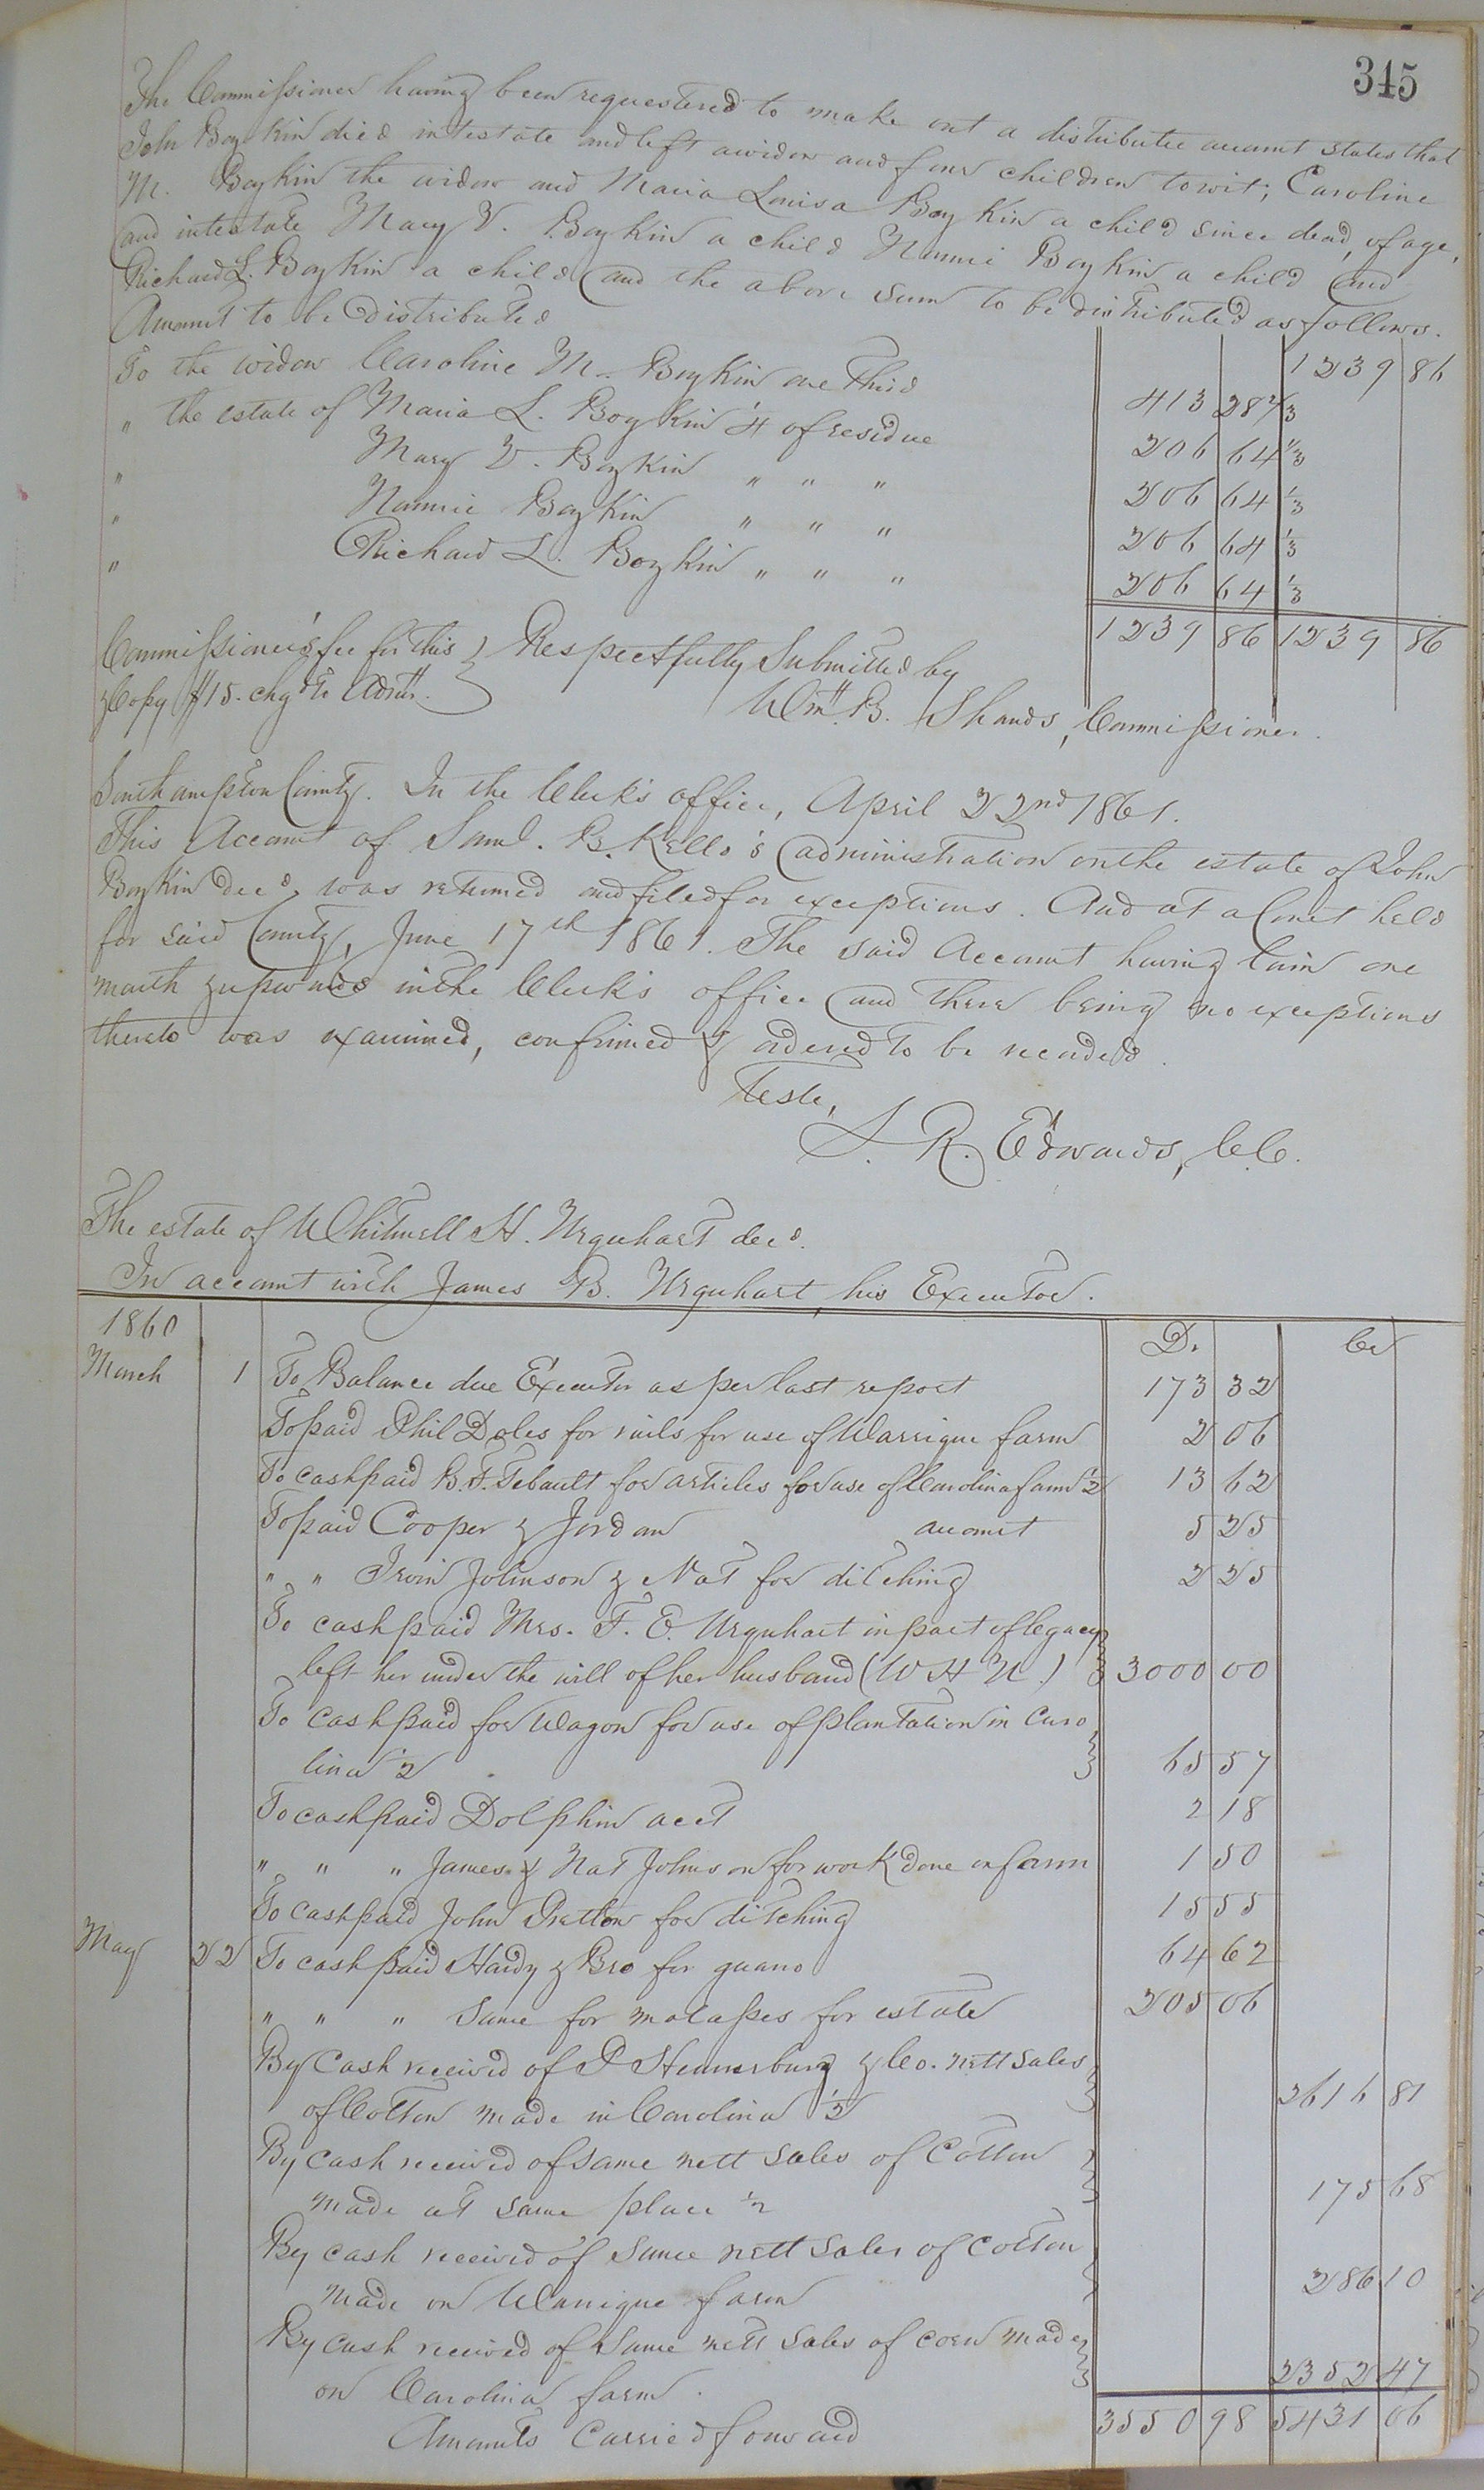 345
The Commissioner having been requestered to make out a distributee account states that
John Boykin died intestate and left a widow and four children towit; Caroline
M. Boykin the widow and Maria Louisa Boykin a child since dead, of age,
and intestate Mary V. Boykin a child Nannie Boykin a child and
Richard L. Boykin a child and the above sum to be distributed as follows.
Amount to be distributed 1239 86
To the widow Caroline M. Boykin one Third 413 28 2/3
" the estate of Maria L. Boykin 1/4 of residue 206 64 1/3
" Mary V. Boykin " " " 206 64 1/3
" Nannie Boykin " " " 206 64 1/3
" Richard L. Boykin " " " 206 64 1/3
1239 86 1239 86
Commissioner's fee for this } Respectfully Submitted by
& Copy $15. chgd to Admr. } Wm. B. Shands, Commissioner.
Southampton County. In the Clerk's office, April 22nd 1861.
This Account of Saml. B. Kello's administration on the estate of John
Boykin decd. was returned and filed for exceptions. And at a Court held
for said County, June 17th 1861. The said Account having lain one
month & upwards in the Clerk's office and there being no exceptions
thereto was examined, confirmed & ordered to be recorded.
Teste,
L. R. Edwards, C.C.
The estate of Whitmell H. Urquhart decd.
In account with James B. Urquhart, his Executor.
1860 D. Cr
March 1 To Balance due Executor as per last report 173 32
To paid Phil Doles for rails for use of Warrique farm 2 06
To cash paid B. F. Tebault for articles for use of Carolina farm 1/2 13 62
To paid Cooper & Jordan account 5 25
" " Irvin Johnson & Nat for ditching 2 25
To cash paid Mrs. F. E. Urquhart in part of legacy
left her under the will of her husband (W H U.) 3000 00
To cash paid for Wagon for use of plantation in Caro
lina 1/2 65 57
To cash paid Dolphin acct 2 18
" " " James & Nat Johnson for work done on farm 1 50
To cash paid John Pretlow for ditching 15 55
May 22 To cash paid Hardy & Bro for guano 64 62
" " " Same for molasses for estate 205 06
By Cash received of P & Co. nett sales
of Cotton made in Carolina 1/2 2616 81
By cash received of same nett sales of Cotton
made at same place 1/2 175 68
By cash received of Same nett sales of cotton
made on Warrique farm 286 10
By cash received of Same nett sales of corn made
on Carolina farm. 2352 47
Amounts Carried forward 3550 98 5431 06